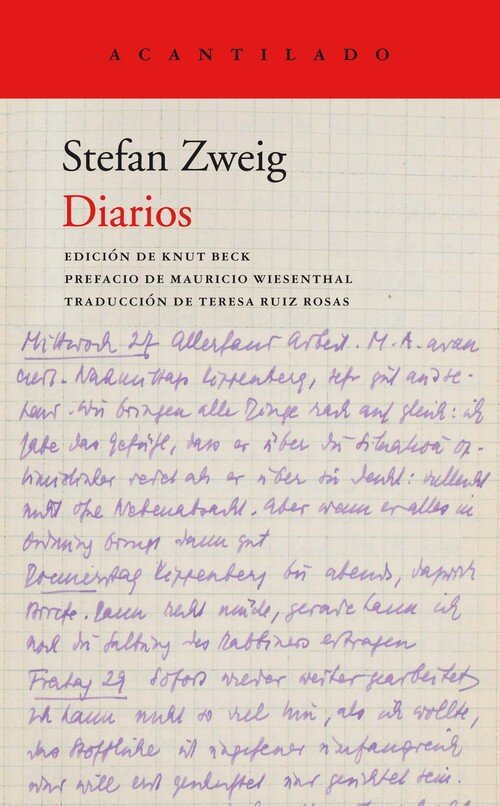 ACANTILADO
Stefan Zweig
Diarios
EDICIÓN DE KNUT BECK
PREFACIO DE MAURICIO WIESENTHAL
TRADUCCIÓN DE TERESA RUIZ ROSAS
Mittwoch 27 Allerhand Arbeit. M. A. avan
ciert. Nachmittags Kippenberg, sehr gut
Wir bringen alle Dinge rasch auf gleich: ich
habe das Gefühl, dass er über die Situation op-
timistischer redet als er über sie denkt: vielleicht
nicht ohne Nebenabsicht. Aber wenn er alles in
Ordnung bringt dann gut
Donnerstag Kippenberg bis abends, dazwisch
Briefe. Dann recht müde, gerade kann ich
noch die Salbung des Rabbiners ertragen
Freitag 29 Sofort wieder weiter gearbeitet
Ich kann nicht so viel tun, als ich wollte,
das Stoffliche ist ungeheuer umfangreich
und will erst gesichtet sein.